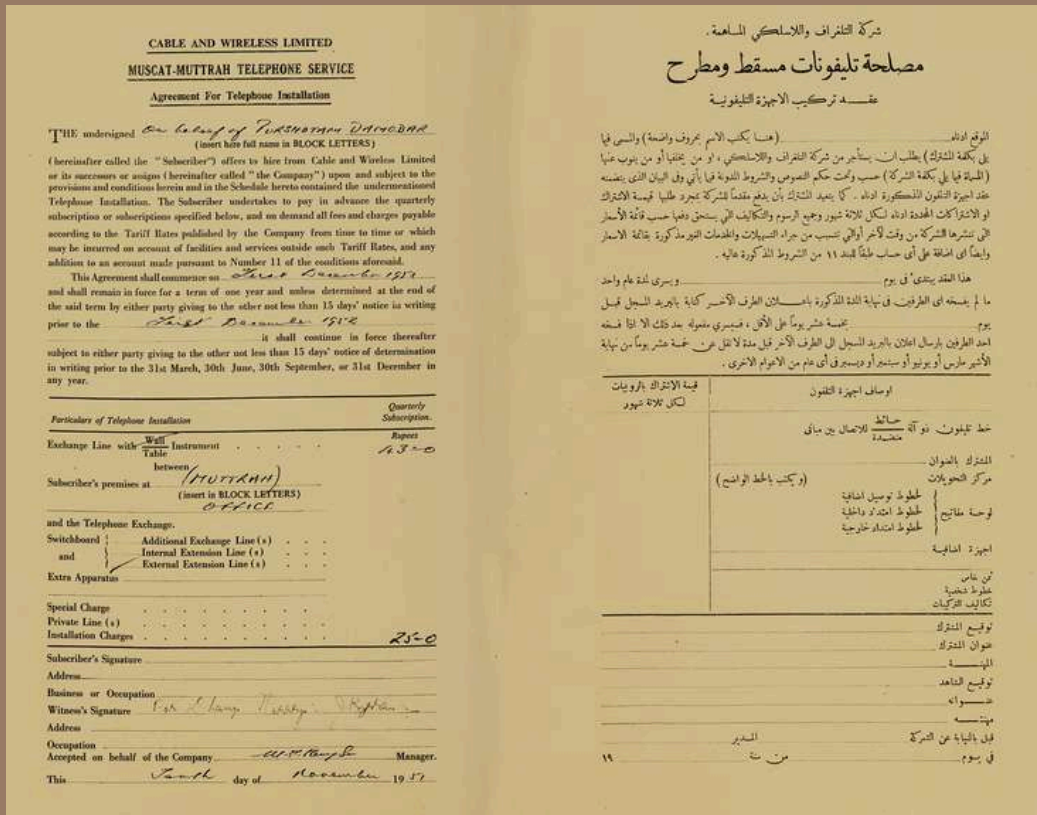 CABLE AND WIRELESS LIMITED
MUSCAT-MUTTRAH TELEPHONE SERVICE
Agreement For Telephone Installation
THE undersigned On behalf of PURSHOTAM DAMODAR
(insert here full name in BLOCK LETTERS)
(hereinafter called the "Subscriber") offers to hire from Cable and Wireless Limited
or its successors or assigns (hereinafter called "the Company") upon and subject to the
provisions and conditions herein and in the Schedule hereto contained the undermentioned
Telephone Installation. The Subscriber undertakes to pay in advance the quarterly
subscription or subscriptions specified below, and on demand all fees and charges payable
according to the Tariff Rates published by the Company from time to time or which
may be incurred on account of facilities and services outside such Tariff Rates, and any
addition to an account made pursuant to Number 11 of the conditions aforesaid.
This Agreement shall commence on First December 1951
and shall remain in force for a term of one year and unless determined at the end of
the said term by either party giving to the other not less than 15 days' notice in writing
prior to the First December 1952
it shall continue in force thereafter
subject to either party giving to the other not less than 15 days' notice of determination
in writing prior to the 31st March, 30th June, 30th September, or 31st December in
any year.
Particulars of Telephone Installation
Quarterly
Subscription.
Rupees
Exchange Line with Wall
Table Instrument
43-0
between
Subscriber's premises at (MUTTRAH)
(insert in BLOCK LETTERS)
OFFICE
and the Telephone Exchange.
Switchboard
and
Additional Exchange Line (s)
Internal Extension Line (s)
External Extension Line (s)
Extra Apparatus
Special Charge
Private Line (s)
Installation Charges 25-0
Subscriber's Signature
Address
Business or Occupation
Witness's Signature
Address
Occupation
Accepted on behalf of the Company Manager.
This Tenth day of November 1951
شركة التلغراف واللاسلكي المساهمة.
مصلحة تليفونات مسقط ومطرح
عقد تركيب الاجهزة التليفونية
الموقع ادناه (هنا يكتب الاسم بحروف واضحة) والمسمى فيما
يلي بكلمة المشترك) يطلب ان يستأجر من شركة التلغراف واللاسلكي، او من يخلفها أو من ينوب عنها
(المسماة فيما يلي بكلمة الشركة) حسب وتحت حكم النصوص والشروط المدونة فيما يأتي وفي البيان الذى يتضمنه
عقد اجهزة التلفون المذكورة ادناه. كما يتعهد المشترك بأن يدفع مقدماً للشركة بمجرد طلبها قيمة الاشتراك
او الاشتراكات المحددة ادناه لكل ثلاثة شهور وجميع الرسوم والتكاليف التي يستحق دفعها حسب قائمة الأسعار
التى تنشرها الشركة من وقت لآخر أوالتي تتسبب من جراء التسهيلات والخدمات الغير مذكورة بقائمة الاسعار
وايضاً اى اضافة على أى حساب طبقاً للبند ١١ من الشروط المذكورة عاليه.
هذا العقد يبتدىء فى يوم ويسرى لمدة عام واحد
ما لم يفسخه اى الطرفين فى نهاية المدة المذكورة باعلان الطرف الآخر كتابة بالبريد المسجل قبل
يوم بخمسة عشر يوماً على الأقل، فيسري مفعوله بعد ذلك الا اذا فسخه
احد الطرفين بارسال اعلان بالبريد المسجل الى الطرف الآخر قبل مدة لا تقل عن خمسة عشر يوماً من نهاية
الأشهر مارس أو يونيو أو سبتمبر أو ديسمبر فى أى عام من الاعوام الاخرى.
اوصاف اجهزة التلفون
قيمة الاشتراك بالروبيات
لكل ثلاثة شهور
خط تليفون ذو آلة حائط
منضدة للاتصال بين مبانى
المشترك بالعنوان
مركز التحويلات (ويكتب بالخط الواضح)
لوحة مفاتيح
خطوط توصيل اضافية
خطوط امتداد داخلية
خطوط امتداد خارجية
اجهزة اضافية
ثمن خاص
خطوط شخصية
تكاليف التركيبات
توقيع المشترك
عنوان المشترك
المهنة
توقيع الشاهد
عنوانه
مهنته
قبل بالنيابة عن الشركة المدير
في يوم من سنة ١٩